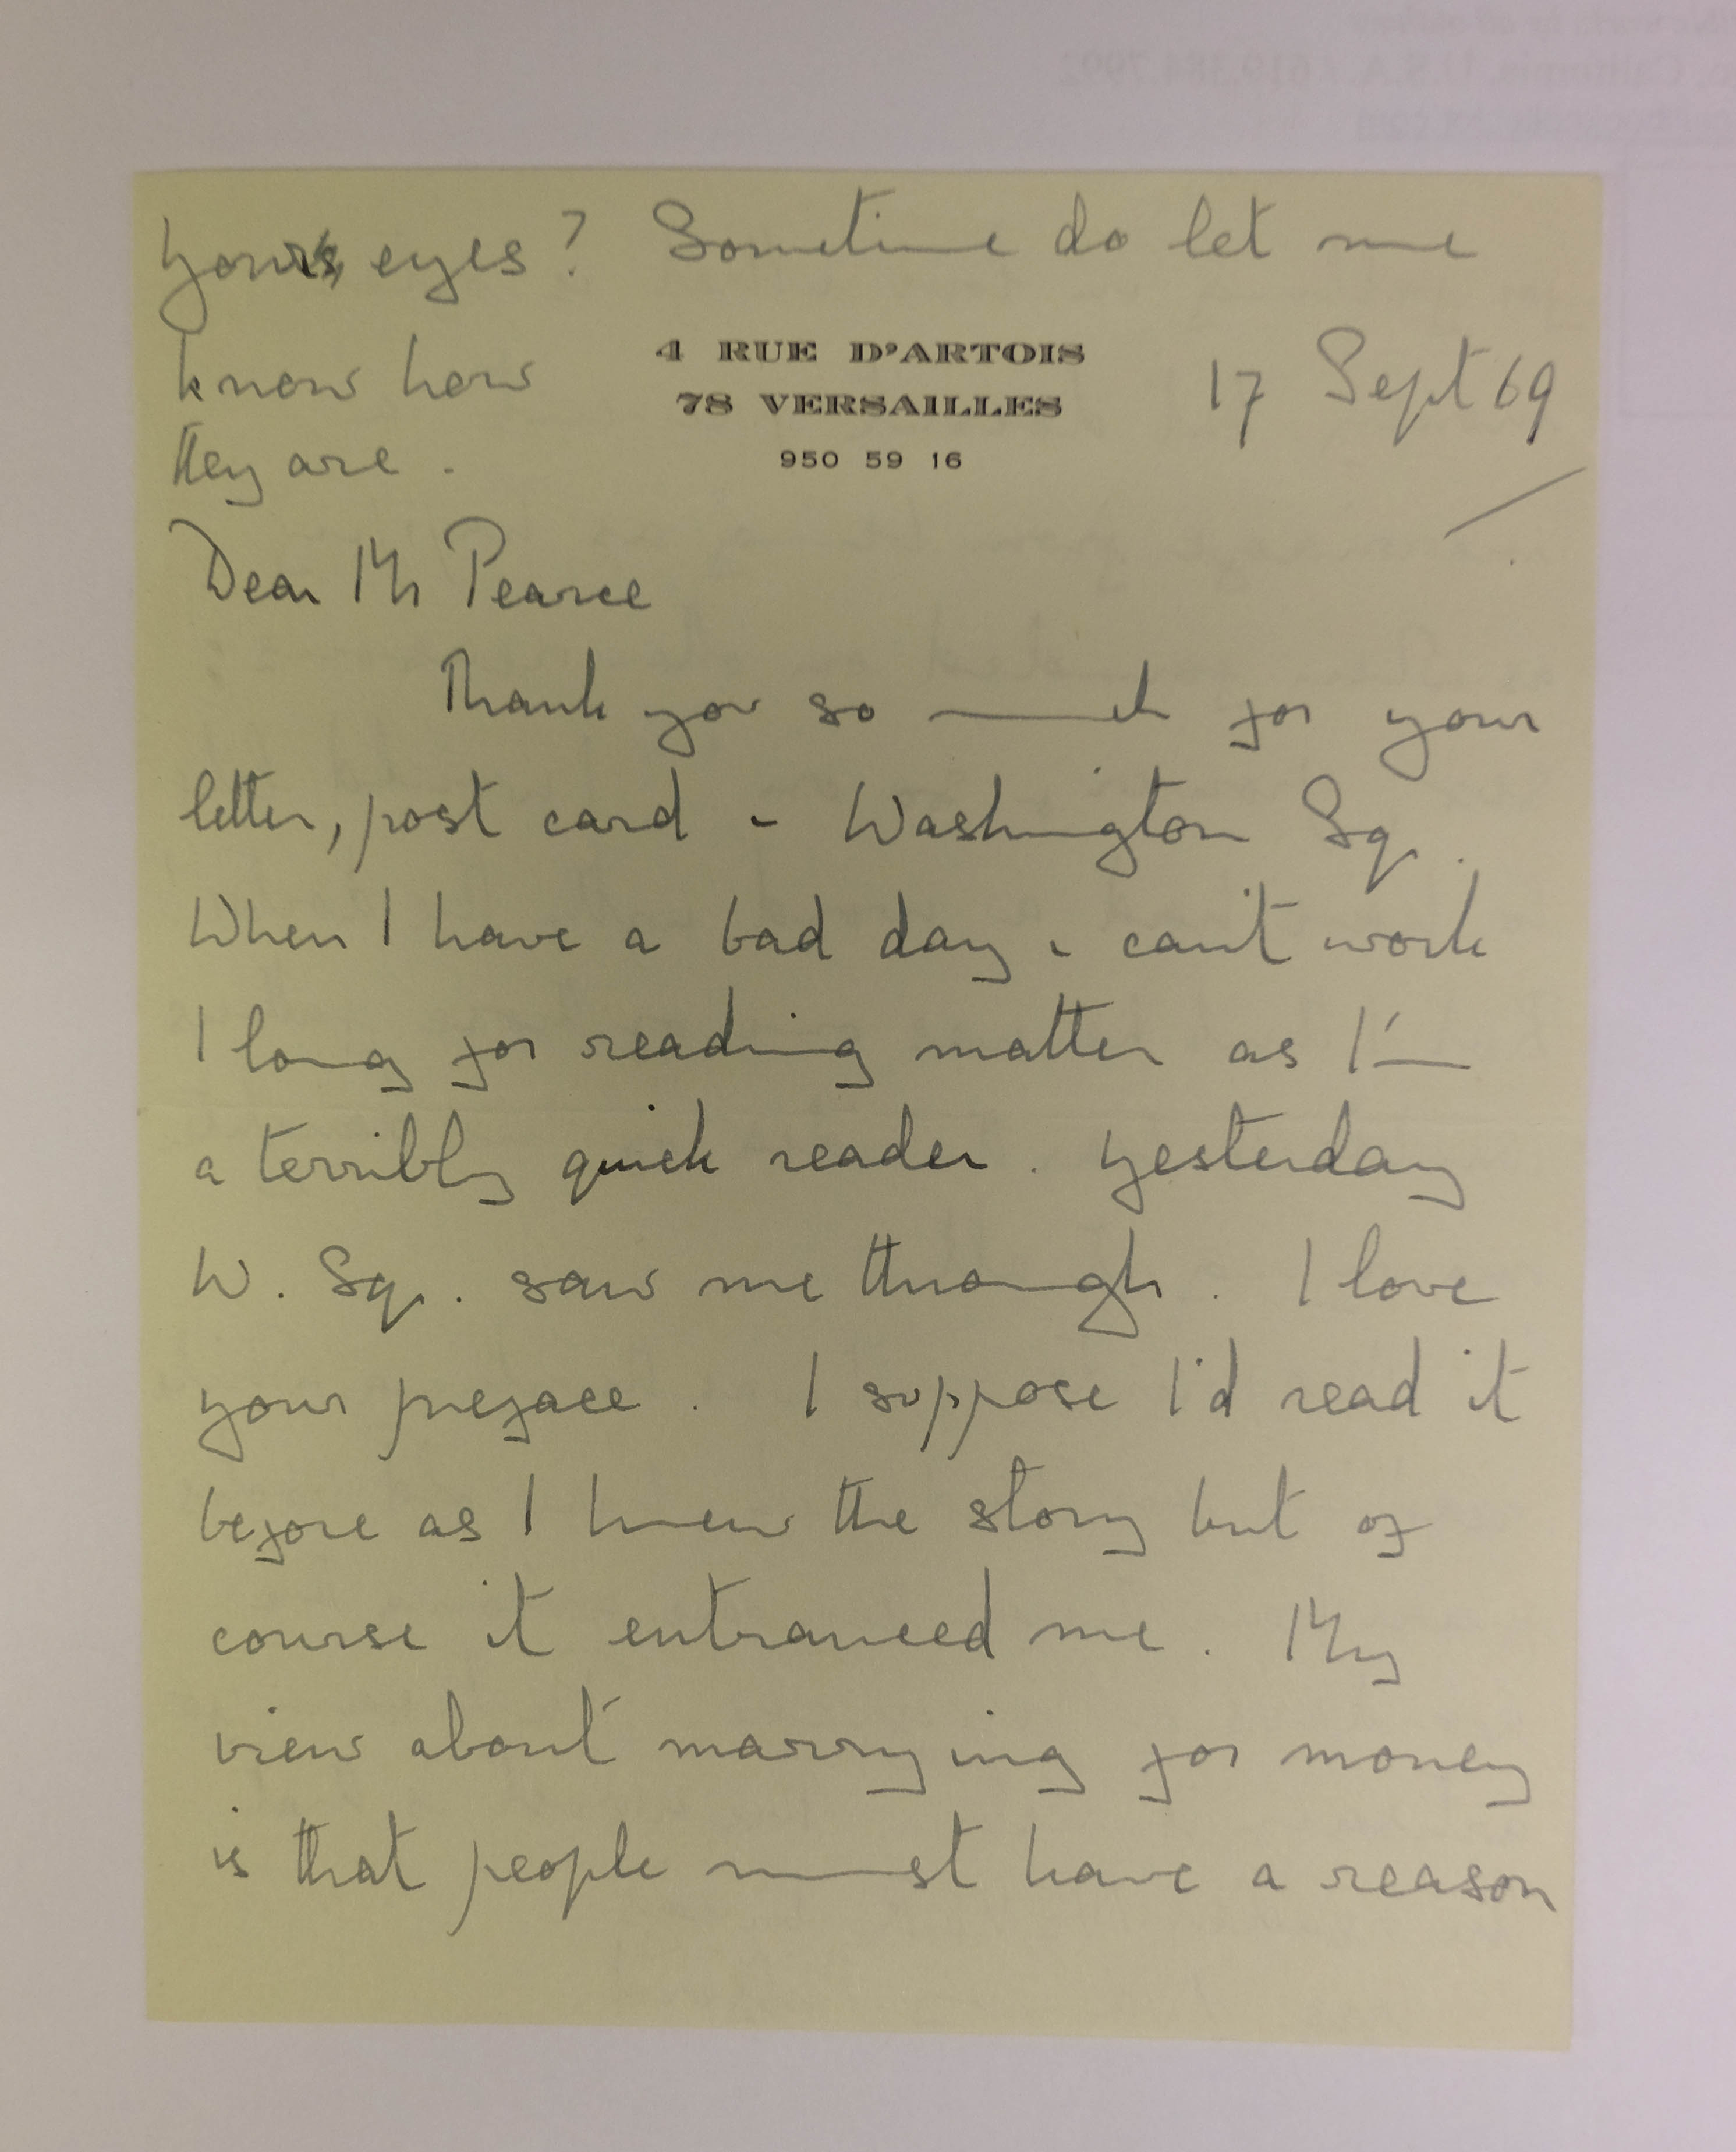 yours eyes? Sometime do let me
know how
they are.
4 RUE D'ARTOIS
78 VERSAILLES
950 59 16
17 Sept 69
Dear Mr Pearce
Thank you so much for your
letter, post card & Washington Sq.
When I have a bad day & can't work
I long for reading matter as I'm
a terribly quick reader. Yesterday
W. Sq. saw me through. I love
your preface. I suppose I'd read it
before as I knew the story but of
course it entranced me. My
view about marrying for money
is that people must have a reason